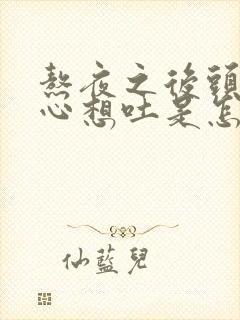 熬夜之後頭
心想吐是怎
仙藍兒